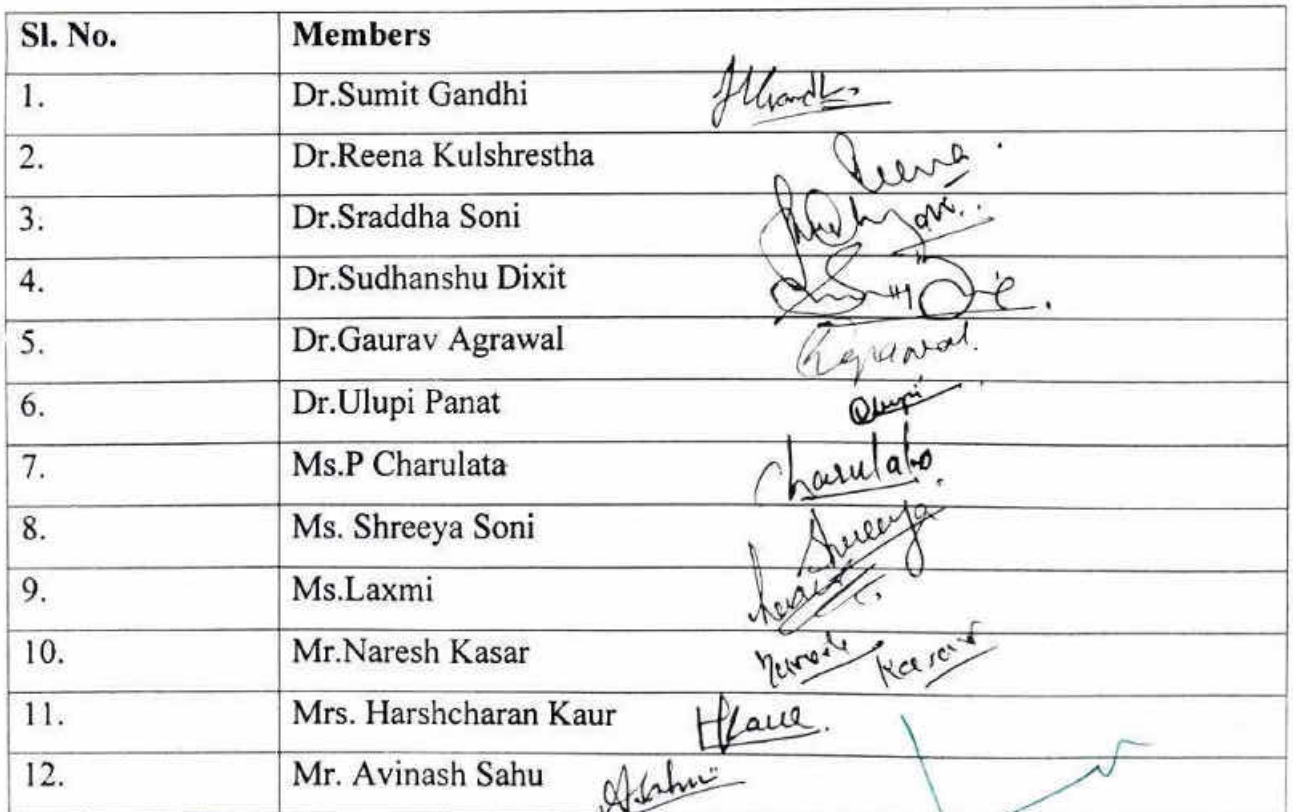 Sl. No. Members
1. Dr.Sumit Gandhi
2. Dr.Reena Kulshrestha Reena
3. Dr.Sraddha Soni
4. Dr.Sudhanshu Dixit
5. Dr.Gaurav Agrawal Agrawal
6. Dr.Ulupi Panat Ulupi
7. Ms.P Charulata Charulata
8. Ms. Shreeya Soni Shreeya
9. Ms.Laxmi
10. Mr.Naresh Kasar Naresh Kasar
11. Mrs. Harshcharan Kaur HKaur
12. Mr. Avinash Sahu A.Sahu